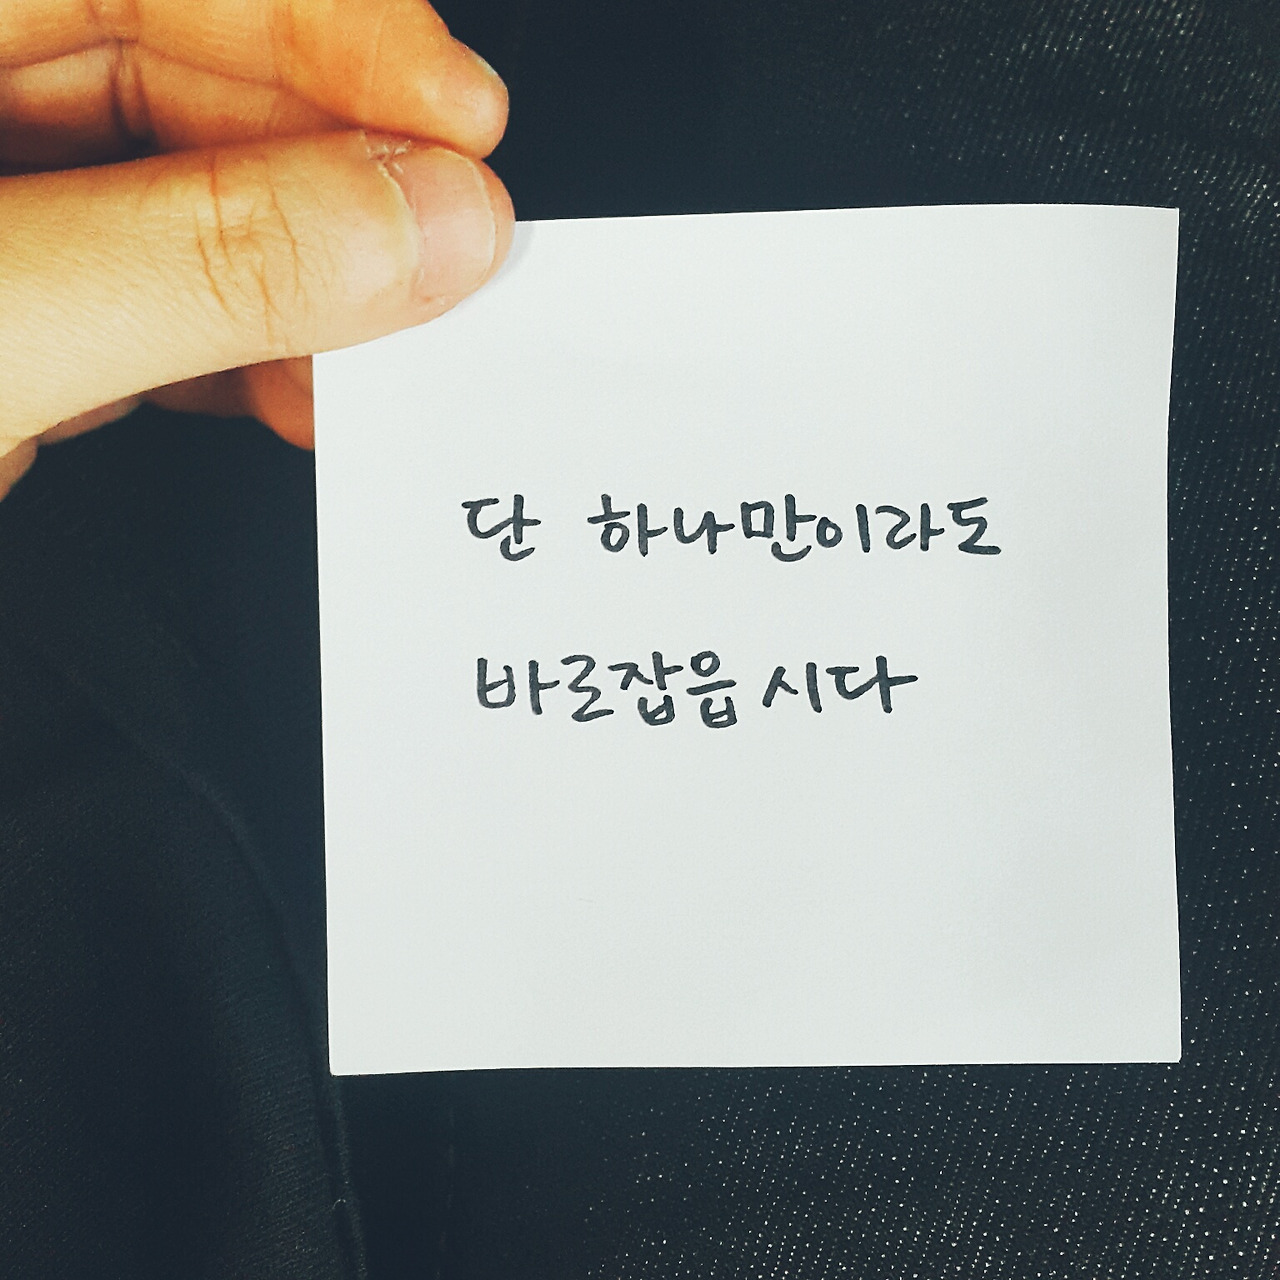 단 하나만이라도
바로잡읍시다